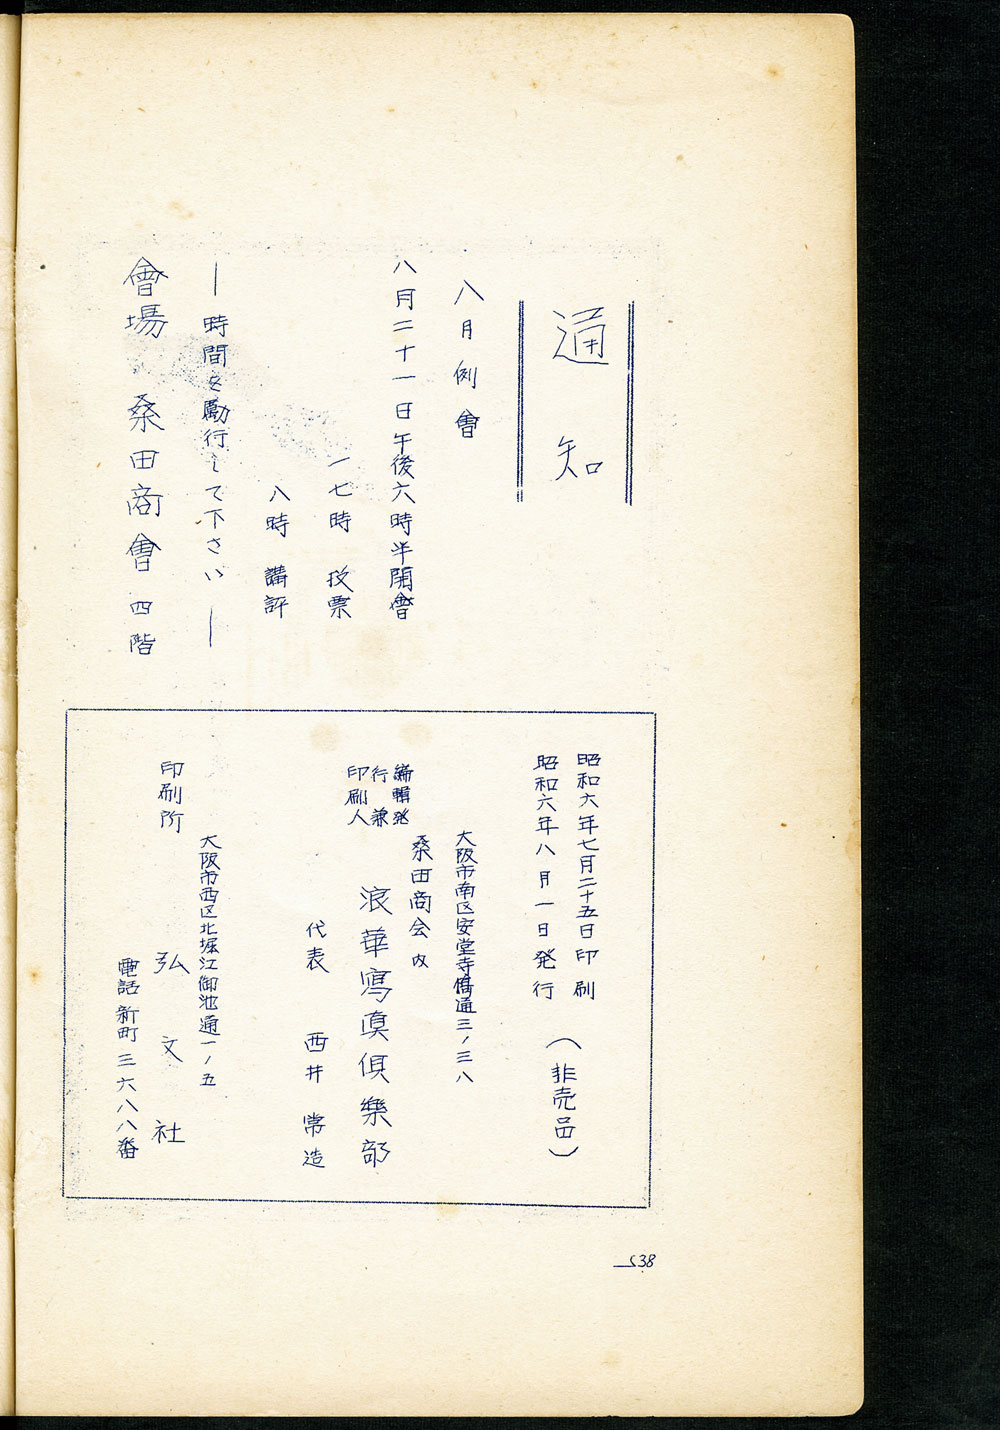 通知
八月例會
八月二十一日午後六時半開會
一七時 投票
八時 講評
― 時間を勵行して下さい ―
會場 桑田商會 四階
昭和六年七月二十五日印刷
昭和六年八月一日発行 (非売品)
大阪市南区安堂寺橋通三ノ三八
桑田商会内
編輯発
行兼
印刷人
浪華寫眞倶樂部
代表 西井常造
大阪市西区北堀江御池通一ノ五
印刷所 弘文社
電話新町三六八八番
38